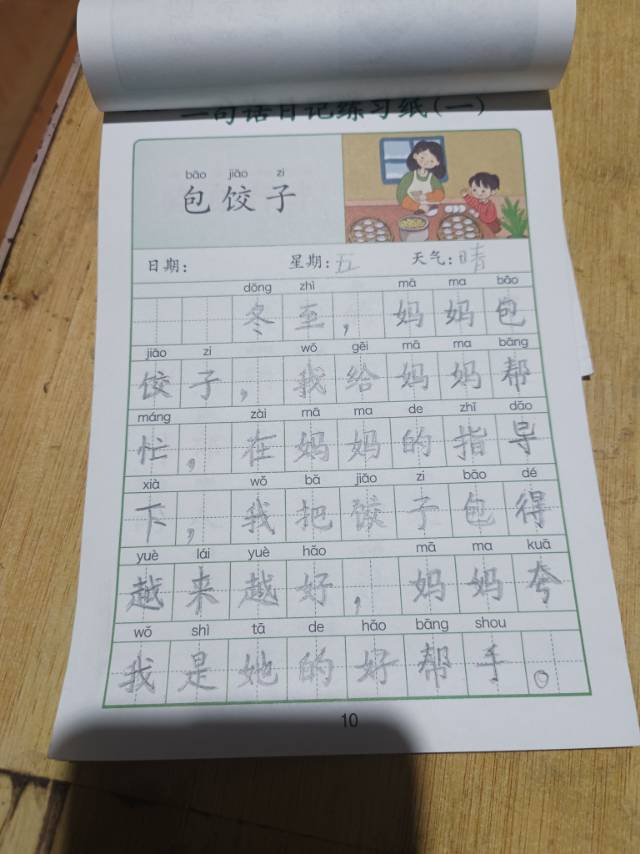 一句话日记练习纸(一)
bāo jiǎo zi
包饺子
日期: 星期:五 天气:晴
dōng zhì mā ma bāo
冬至,妈妈包
jiǎo zi wǒ gěi mā ma bāng
饺子,我给妈妈帮
máng zài mā ma de zhǐ dǎo
忙,在妈妈的指导
xià wǒ bǎ jiǎo zi bāo dé
下,我把饺子包得
yuè lái yuè hǎo mā ma kuā
越来越好,妈妈夸
wǒ shì tā de hǎo bāng shou
我是她的好帮手。
10